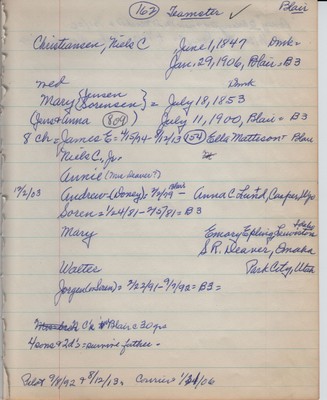 (162) Teamster ✓ Blair
Christiansen, Niels C June 1, 1847 Dmk=
Jan. 29, 1906, Blair = B3
med Dmk
Mary {Jensen Sorensen} = July 18, 1853
(Jens + Anna (809) July 11, 1900, Blair = B3
8 ch = James E = (154) Ella Mattison Blair
Niels C., Jr.
Annie (Mrs. Deaver?)
12/2/03 Andrew (Doney) Anna C Lund, Casper, Wyo
Soren = 2/24/81- = B3
Mary Emory Epling, Idaho
S R. Deaver, Omaha
Walter Park City, Utah
Jorgen (or Soren) = 2/22/91-9/7/92 = B3 =
C's Blair c 30 yrs
4 sons + 2 d's = survive father.
Pilot 9/8/92 + 8/12/13. Courier /06